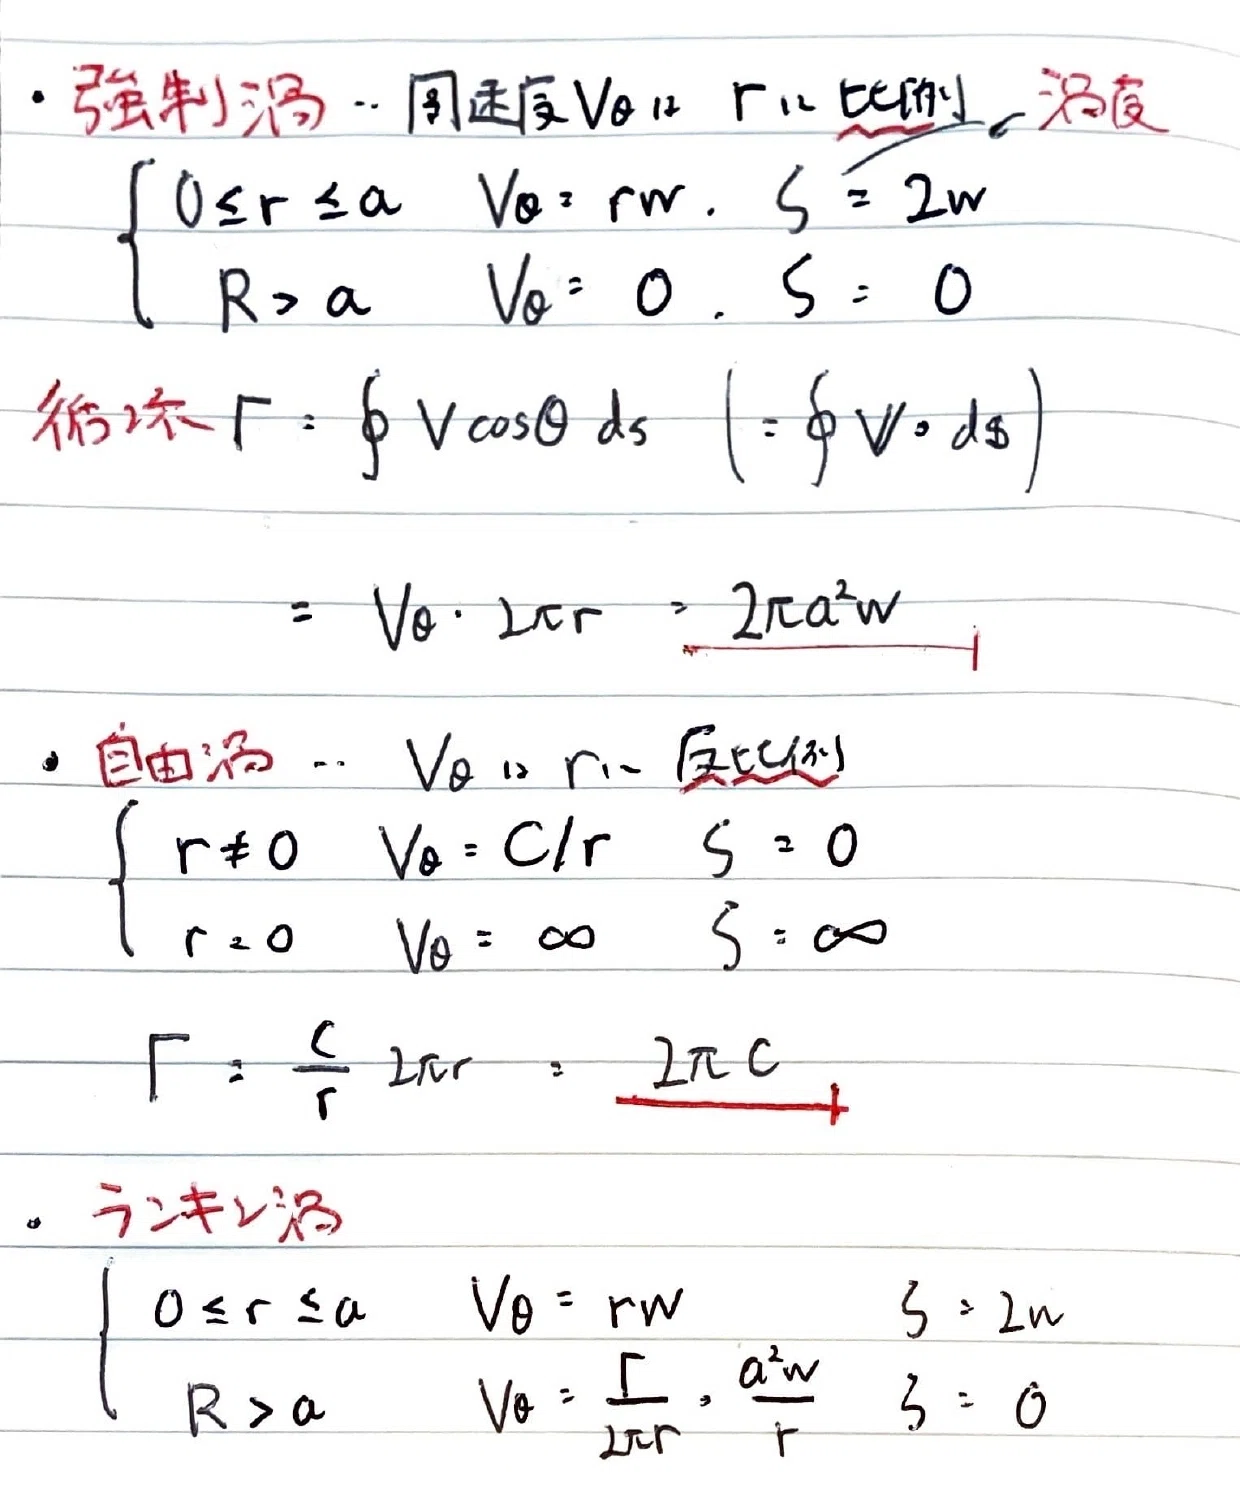 ・強制渦 ‥ 周速度Vθは rに比例 渦度
0≤r≤a Vθ = rw. ζ = 2w
R>a Vθ = 0. ζ = 0
循環 Γ = ∮ V cosθ ds (= ∮ V・ds)
= Vθ・2πr = 2πa²w
・自由渦 ‥ Vθは rに反比例
r≠0 Vθ = C/r ζ = 0
r=0 Vθ = ∞ ζ = ∞
Γ = C/r 2πr = 2πC
・ランキン渦
0≤r≤a Vθ = rw ζ = 2w
R>a Vθ = Γ/2πr = a²w/r ζ = 0